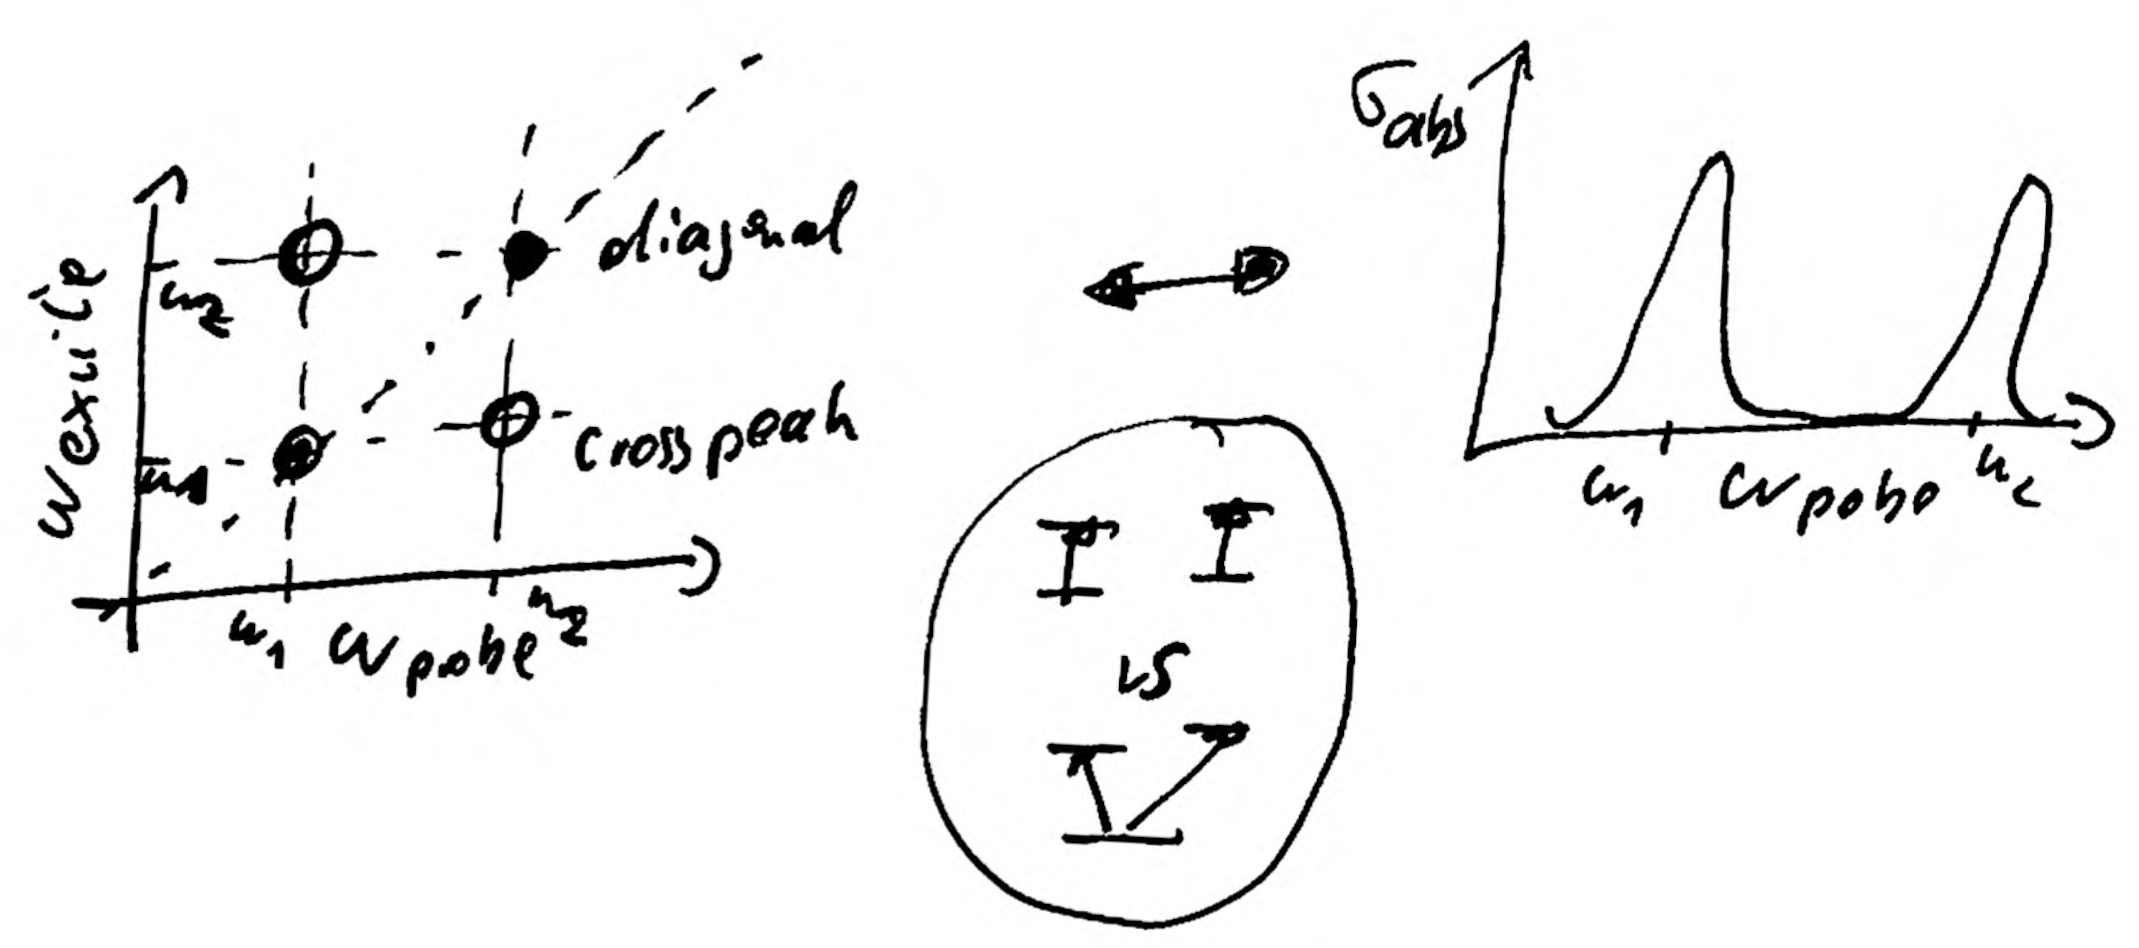 ω excite
ω2
ω1
diagonal
cross peak
ω1 ω probe ω2
σabs
ω1 ω pobe ω2
vs